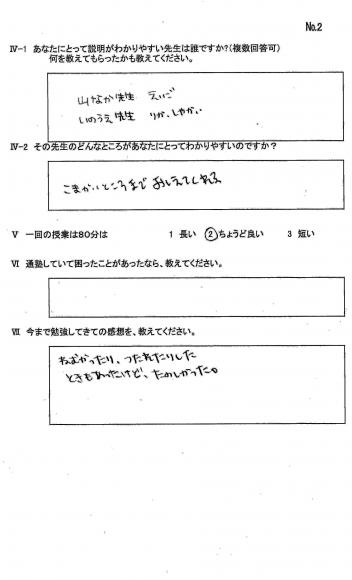 No.2
Ⅳ-1 あなたにとって説明がわかりやすい先生は誰ですか?(複数回答可)
何を教えてもらったかも教えてください。
山なか先生 えいご
いのうえ先生 りか、しゃかい
Ⅳ-2 その先生のどんなところがあなたにとってわかりやすいのですか?
こまかいところまでおしえてくれる
Ⅴ 一回の授業は80分は 1 長い ②ちょうど良い 3 短い
Ⅵ 通塾していて困ったことがあったなら、教えてください。
Ⅶ 今まで勉強してきての感想を、教えてください。
ねむかったり、つかれたりした
ときもあったけど、たのしかった。